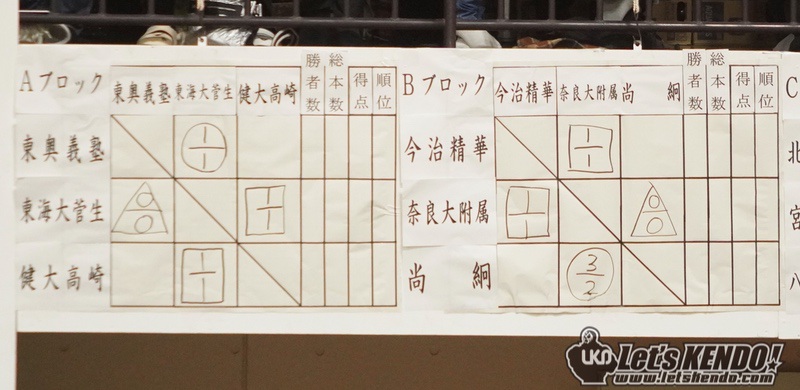 Aブロック 東奥義塾 東海大菅生 健大高崎 勝者数 総本数 得点 順位 Bブロック 今治精華 奈良大附属 尚絅 勝者数 総本数 得点 順位 C
東奥義塾 1 1 今治精華 1 1 北
東海大菅生 0 0 1 1 奈良大附属 1 1 0 0 宮
健大高崎 1 1 尚絅 3 2 八
LKD Let's KENDO!
www.letskendo.com